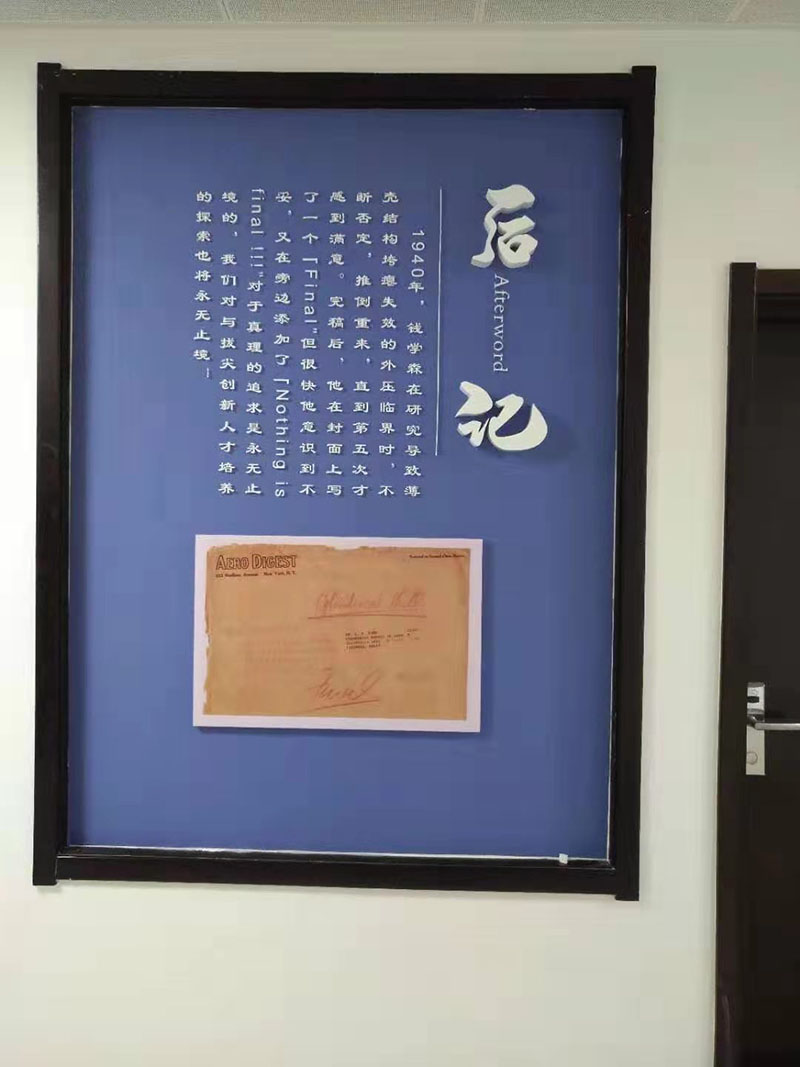 后记
Afterword
1940年，钱学森在研究导致薄
壳结构垮瘪失效的外压临界时，不
断否定，推倒重来，直到第五次才
感到满意。完稿后，他在封面上写
了一个「Final"但很快他意识到不
妥，又在旁边添加了「Nothing is
final !!!"对于真理的追求是永无止
境的，我们对与拔尖创新人才培养
的探索也将永无止境—
AERO DIGEST
Madison Avenue New York, N.Y.
Final